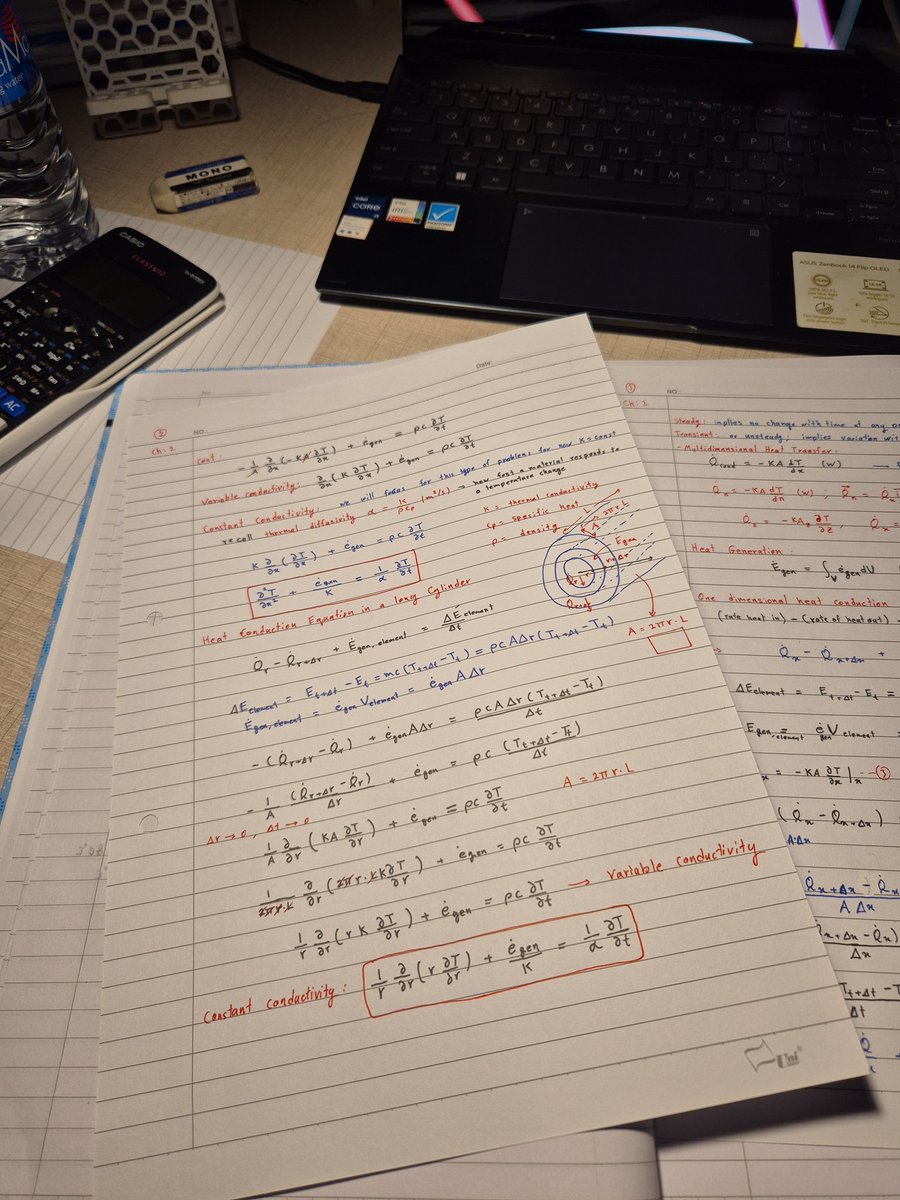 MONO
CASIO
CLASSWIZ
OPTN
CALC
AC
intel
CORE
i7
PANTONE
ASUS Zenbook 14 Flip OLED
Q W E R T Y U I O P
A S D F G H J K L
Z X C V B N M
No.
Date:
②
Ch: 2
NO.
cont:
- 1/A ∂/∂x (-KA ∂T/∂x) + ėgen = ρc ∂T/∂t
Variable conductivity: ∂/∂x (K ∂T/∂x) + ėgen = ρc ∂T/∂t
Constant conductivity: we will focus for this type of problems for now K = const
recall thermal diffusivity α = K/ρcp [m²/s] → how fast a material responds to a temperature change
K = thermal conductivity
cp = specific heat
ρ = density
K ∂/∂x (∂T/∂x) + ėgen = ρc ∂T/∂t
∂²T/∂x² + ėgen/K = 1/α ∂T/∂t
L
A = 2πr.L
Egen
r+Δr
A = 2πr.L
Heat Conduction Equation in a long Cylinder
Q̇r - Q̇r+Δr + Ėgen,element = ΔEelement/Δt
ΔEelement = Et+Δt - Et = mc(Tt+Δt - Tt) = ρcAΔr(Tt+Δt - Tt)
Ėgen,element = ėgen Velement = ėgen AΔr
-(Q̇r+Δr - Q̇r) + ėgen AΔr = ρcAΔr(Tt+Δt - Tt)/Δt
- 1/A (Q̇r+Δr - Q̇r)/Δr + ėgen = ρc (Tt+Δt - Tt)/Δt
Δr → 0, Δt → 0
A = 2πr.L
1/A ∂/∂r (KA ∂T/∂r) + ėgen = ρc ∂T/∂t
1/2πr.L ∂/∂r (2πr.L K ∂T/∂r) + ėgen = ρc ∂T/∂t
1/r ∂/∂r (r K ∂T/∂r) + ėgen = ρc ∂T/∂t → Variable conductivity
Constant conductivity: 1/r ∂/∂r (r ∂T/∂r) + ėgen/K = 1/α ∂T/∂t
Uni
Ch: 2
NO.
Steady: implies no change with time at any
Transient or unsteady: implies variation wit
- Multidimensional Heat Transfer:
Q̇cond = -KA dT/dx (W)
Q̇n = -KA dT/dn (W) ;
Q̇z = -KAz ∂T/∂z
Heat Generation:
Ėgen = ∫V ėgen dV
One dimensional heat conduction
(rate heat in) - (rate of heat out) -
Q̇x - Q̇x+Δx +
ΔEelement = Et+Δt - Et =
Egen,element = ėgen Velement
= -KA ∂T/∂x |x
(Q̇x - Q̇x+Δx)
A.Δx
Q̇x+Δx - Q̇x
AΔx
Δx
Δt